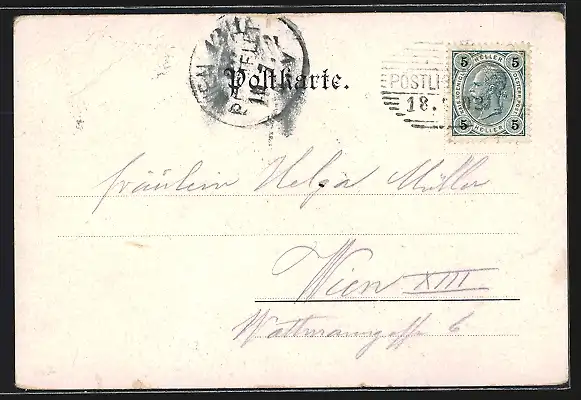 Postkarte.
5 HELLER 5
POSTLI
18.
5 HELLER 5
Fräulein Helga Müller
Wien XIII
Wattmanngasse 6